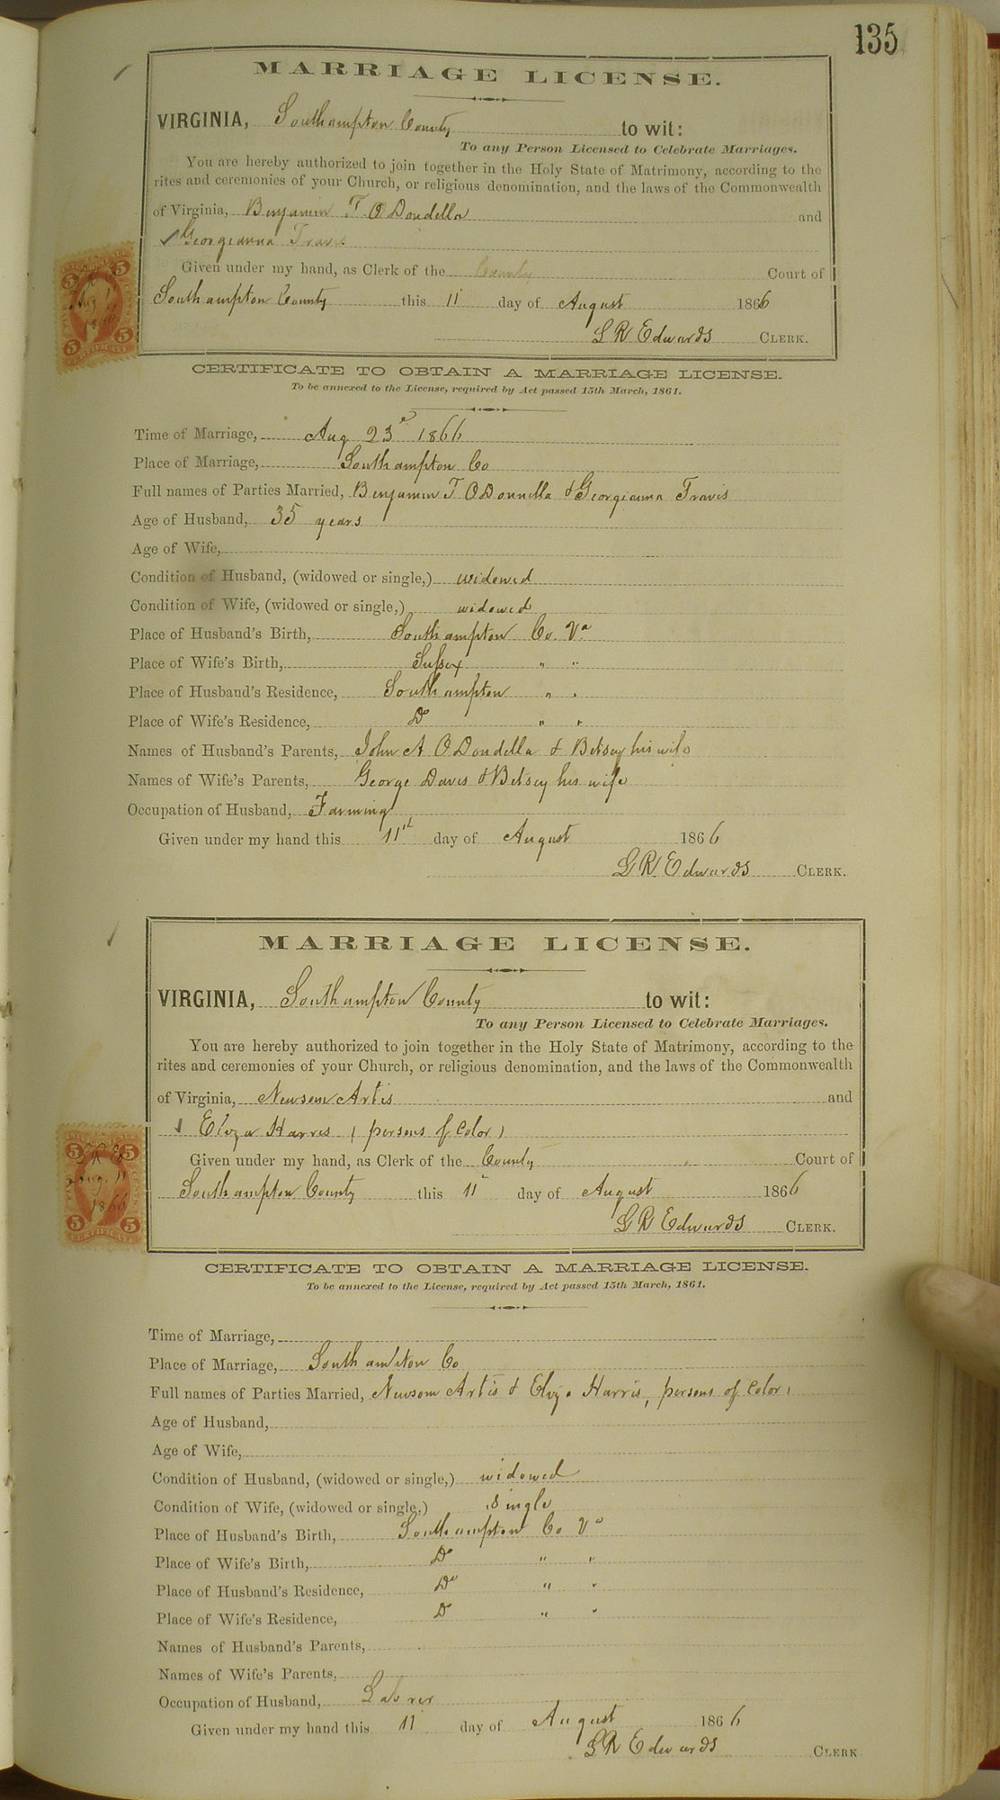 135
MARRIAGE LICENSE.
VIRGINIA, Southampton County to wit:
To any Person Licensed to Celebrate Marriages.
You are hereby authorized to join together in the Holy State of Matrimony, according to the
rites and ceremonies of your Church, or religious denomination, and the laws of the Commonwealth
of Virginia, Benjamin T. O Dondella and
Georgeanna Travis
Given under my hand, as Clerk of the County Court of
Southampton County this 11 day of August 1866
L R Edwards CLERK.
CERTIFICATE TO OBTAIN A MARRIAGE LICENSE.
To be annexed to the License, required by Act passed 15th March, 1861.
Time of Marriage, Aug 23d 1866
Place of Marriage, Southampton Co
Full names of Parties Married, Benjamin T O Donnella & Georgianna Travis
Age of Husband, 35 years
Age of Wife,
Condition of Husband, (widowed or single,) widowed
Condition of Wife, (widowed or single,) widowed
Place of Husband's Birth, Southampton Co Va
Place of Wife's Birth, Sussex " "
Place of Husband's Residence, Southampton " "
Place of Wife's Residence, Do " "
Names of Husband's Parents, John A O Dondella & Betsey his wife
Names of Wife's Parents, George Davis & Betsey his wife
Occupation of Husband, Farming
Given under my hand this 11th day of August 1866
L R Edwards CLERK.
MARRIAGE LICENSE.
VIRGINIA, Southampton County to wit:
To any Person Licensed to Celebrate Marriages.
You are hereby authorized to join together in the Holy State of Matrimony, according to the
rites and ceremonies of your Church, or religious denomination, and the laws of the Commonwealth
of Virginia, Newsom Artis and
Eliza Harris (persons of Color)
Given under my hand, as Clerk of the County Court of
Southampton County this 11 day of August 1866
L R Edwards CLERK.
5 5
Aug. 11
1866
5 CERTIFICATE 5
CERTIFICATE TO OBTAIN A MARRIAGE LICENSE.
To be annexed to the License, required by Act passed 15th March, 1861.
Time of Marriage,
Place of Marriage, Southampton Co
Full names of Parties Married, Newsom Artis & Eliza Harris, persons of Color
Age of Husband,
Age of Wife,
Condition of Husband, (widowed or single,) widowed
Condition of Wife, (widowed or single,) single
Place of Husband's Birth, Southampton Co Va
Place of Wife's Birth, Do " "
Place of Husband's Residence, Do " "
Place of Wife's Residence, Do " "
Names of Husband's Parents,
Names of Wife's Parents,
Occupation of Husband, Laborer
Given under my hand this 11 day of August 1866
L R Edwards CLERK